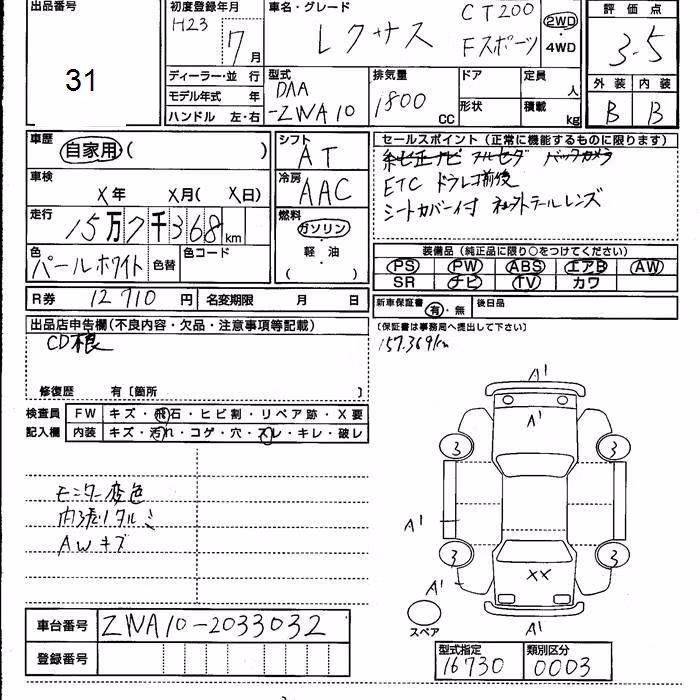 出品番号
31
初度登録年月
H23
7月
車名・グレード
レクサス
CT200
Fスポーツ
2WD
・
4WD
評価点
3.5
外装 内装
B B
ディーラー・並 行
モデル年式 年
ハンドル 左・右
型式
DAA
-ZWA10
排気量
1800 CC
ドア
形状
定員
人
積載
kg
車歴
自家用・( )
車検
X年 X月( X日)
走行
15万7千368km
色
パールホワイト
色替
色コード
シフト
AT
冷房
AAC
燃料
ガソリン
・
軽・油
( )
セールスポイント(正常に機能するものに限ります)
純正ナビ フルセグ バックカメラ
ETC ドラレコ前後
シートカバー付 社外テールレンズ
装備品(純正品に限り○をつけてください)
PS PW ABS エアB AW
SR ナビ TV カワ
R券 12710円 名変期限 月 日
新車保証書 有・無 後日品
(保証書は事務局へ提出して下さい)
157.369km
出品店申告欄(不良内容・欠品・注意事項等記載)
CD根
修復歴 有〔箇所 〕
検査員
記入欄
FW キズ・飛石・ヒビ割・リペア跡・X要
内装 キズ・汚れ・コゲ・穴・スレ・キレ・破レ
モニター変色
内張りタルミ
AWキズ
A1
A1
3 3
A1
3 3
XX
A1
A1
スペア
車台番号 ZWA10-2033032
登録番号
型式指定 類別区分
16730 0003